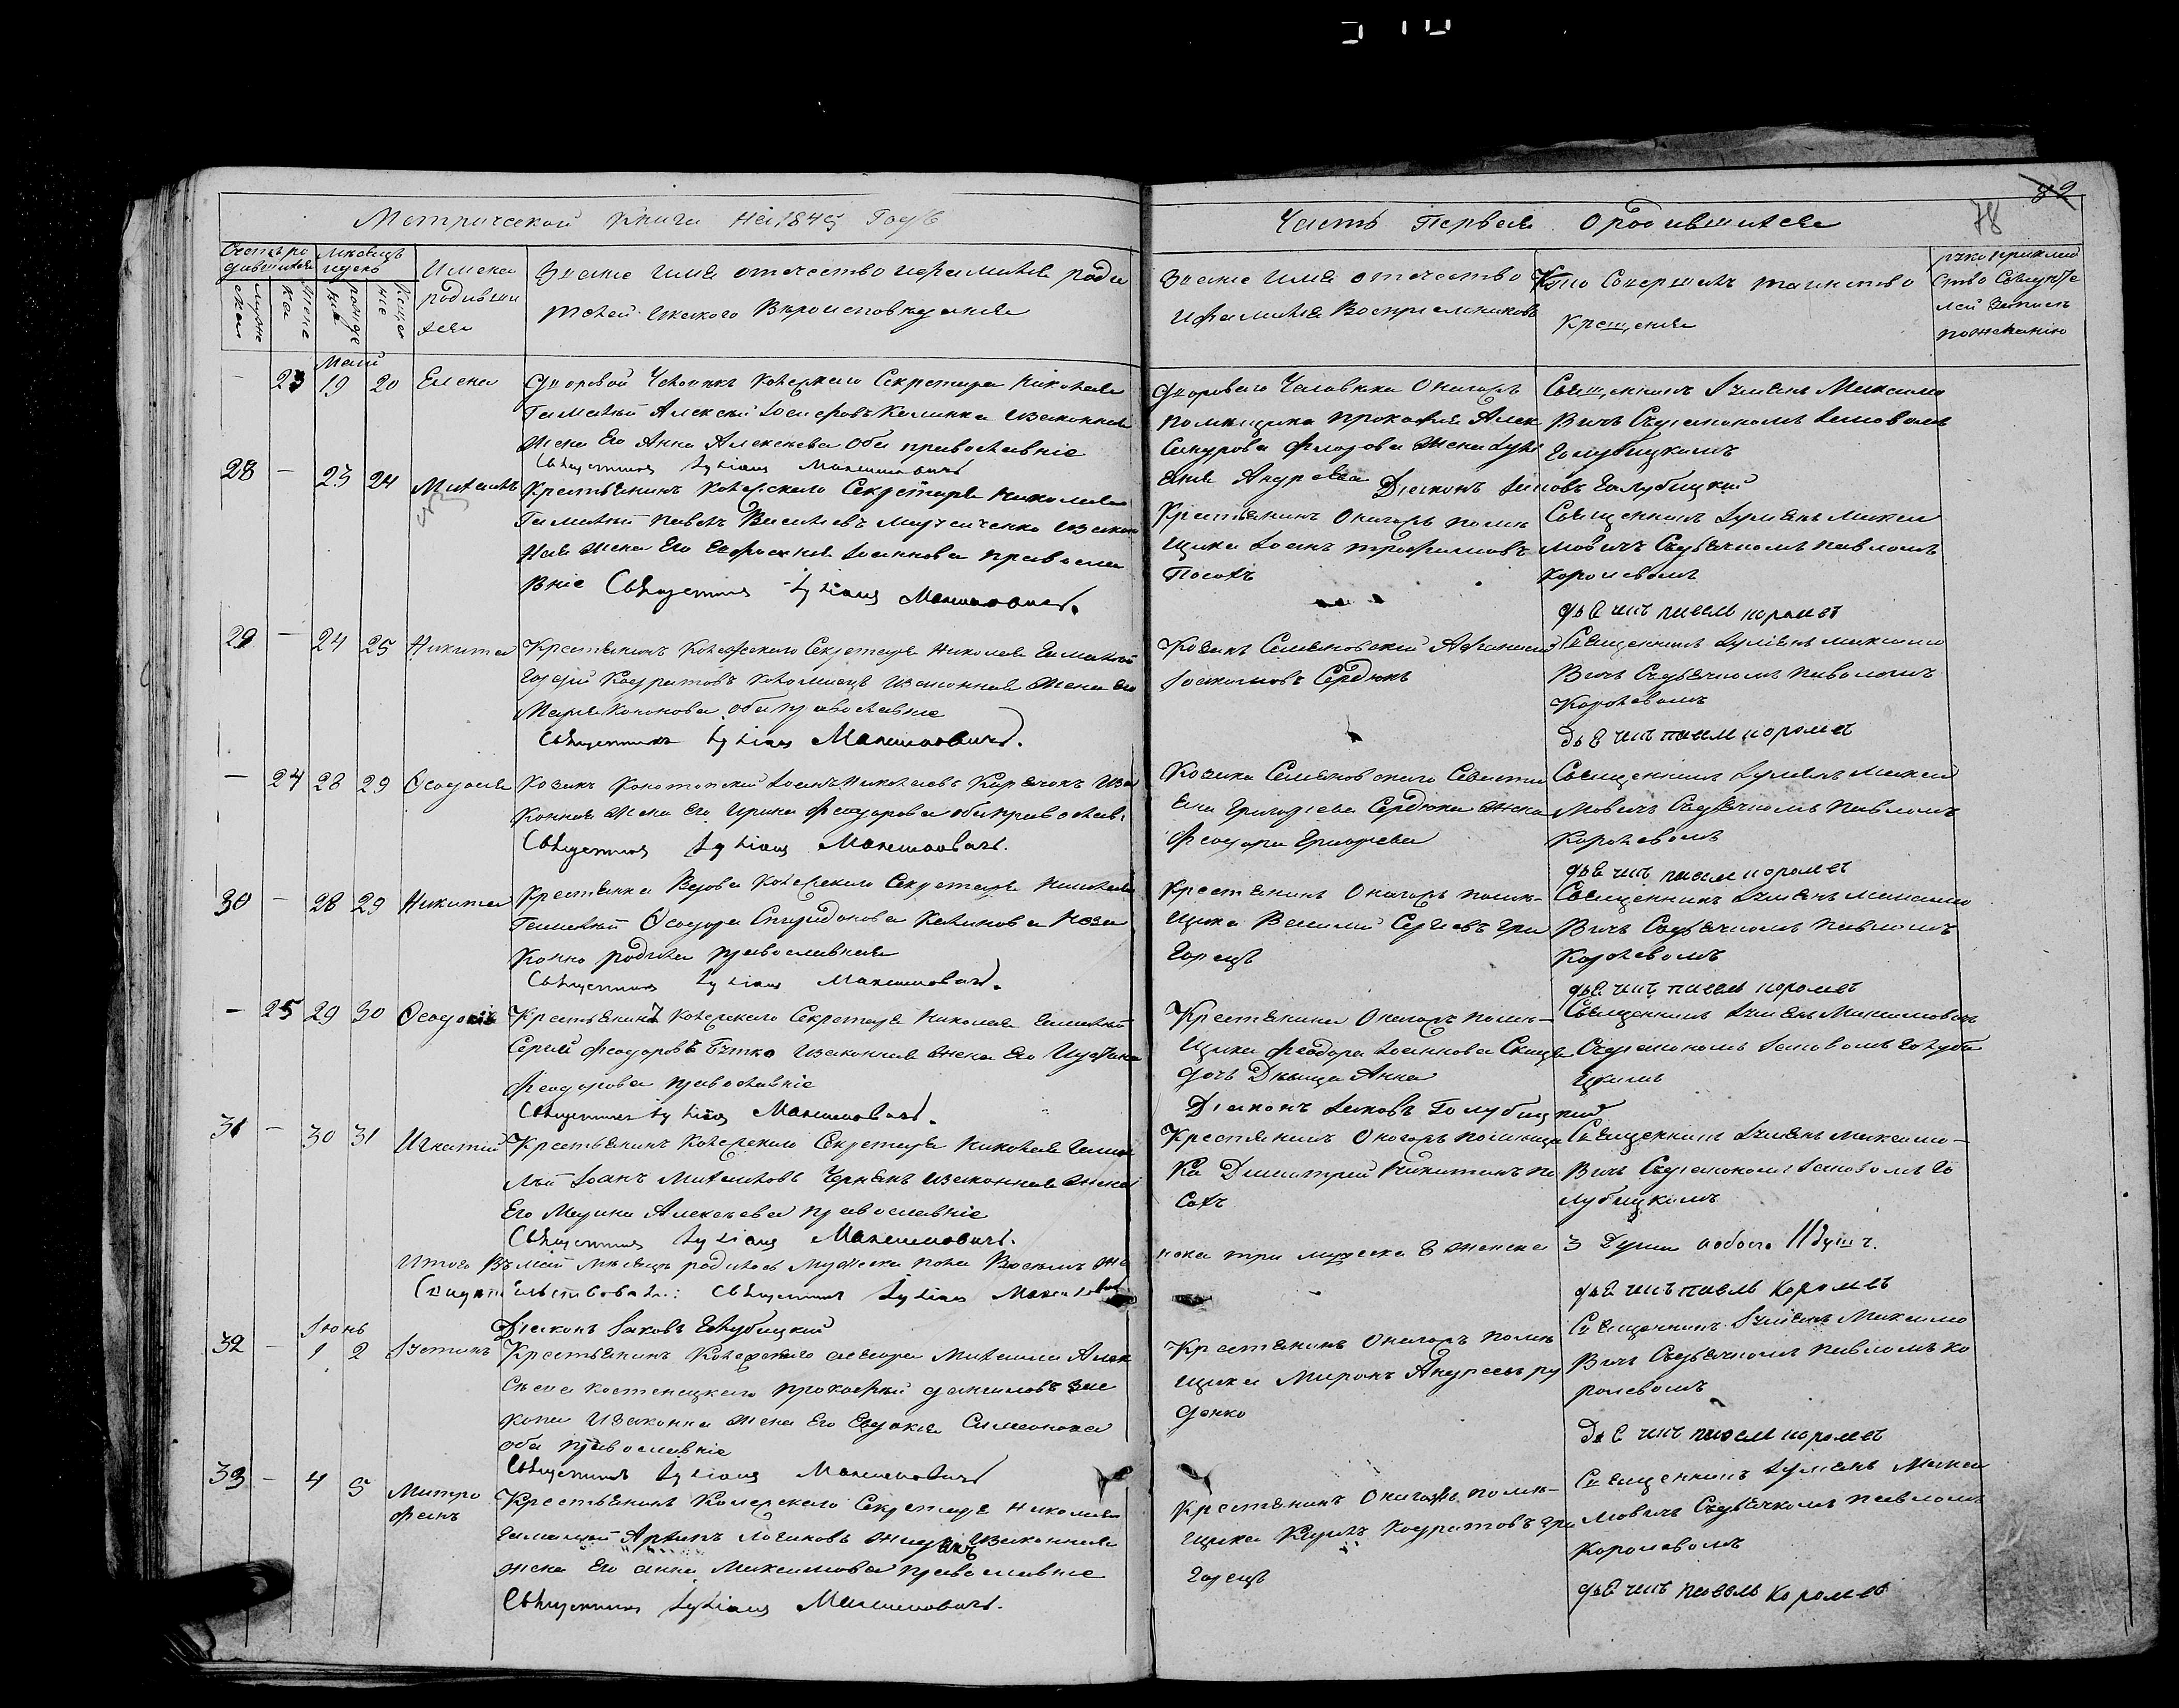 Метрической книги на 1845 Годъ
Часть Первая О родившихся
78
Имена родивши хся
Званіе Имя отечество и фамилія роди
телей икакого Вероисповеданія
Званіе Имя отечество
и фамилія Восприемниковъ
Кто Совершалъ таинство
Крещенія
Маій
23 19 20 Елена
Дворовой Человекъ Колежкаго Секретаря Николая
Гамалѣй Алексѣй Іосифовъ Калинка изаконная
жена Его Анна Алексеева Оба православніе
Священникъ Іуліанъ Максимовичъ
Дворового Человека Оногожъ
помещика Прокофія Алек
сандрова Федорова жена Іулі
анія Андреева
Священникъ Іуліанъ Максимо
вичъ Съдіакономъ Іаковомъ
Голубицкимъ
Діаконъ Іаковъ Голубицкій
28 — 23 24 Михаилъ
Крестьянинъ Колежскаго Секретаря Николая
Гамалѣй Павелъ Василіевъ изакон
ная жена Его Евфросинія Іоаннова правосла
вніе Священникъ Іуліанъ Максимовичъ.
Крестьянинъ Оногожъ поме
щика Іоанъ Трофимовъ
Посохъ
Священникъ Іуліанъ Макси
мовичъ Съдьячкомъ Павломъ
Королевомъ
дьячикъ павелъ королевъ
29 — 24 25 Никита
Крестьянинъ Колежскаго Секретаря Николая Гамалѣй
Гордѣй Кодратовъ Коломіецъ изаконная жена его
Марія Кононова оба православніе
Священникъ Іуліанъ Максимовичъ.
Козакъ Семяновскій Афанасій
Іоакимовъ Сердюкъ
Священникъ Іуліанъ Максимо
вичъ Съдьячкомъ Павломъ
Королевомъ
дьячикъ павелъ королевъ
— 24 28 29 Феодосія
Козакъ Конотопскій Іоанъ Николаевъ Кирячокъ иза
конная жена Его Ирина Феодорова оба православ.
Священникъ Іуліанъ Максимовичъ.
Козака Семяновскаго Савасті
яна Григоріева Сердюка жена
Феодора Григоріева
Священникъ Іуліанъ Макси
мовичъ Съдьячкомъ Павломъ
Королевомъ
дьячикъ павелъ королевъ
30 — 28 29 Никита
Крестьянка Вдова Колежскаго Секретаря Николая
Гамалѣй Феодора Спиридонова Калинова Неза
конно родила православная
Священникъ Іуліанъ Максимовичъ.
Крестянинъ Оногожъ поме-
щика Василій Сергіевъ Гри
горецъ
Священникъ Іуліанъ Максимо
вичъ Съдьячкомъ Павломъ
Королевомъ
дьячикъ павелъ королевъ
— 25 29 30 Феодосія
Крестьянинъ Колежскаго Секретаря Николая Гамалѣй
Сергій Феодоровъ Бутко изаконная жена Его
Феодорова православніе
Священникъ Іуліанъ Максимовичъ.
Крестянина Оногожъ поме-
щика Феодора Іоаннова
дочь Девица Анна
Священникъ Іуліанъ Максимовичъ
Съдіакономъ Іаковомъ Голуби
цкимъ
Діаконъ Іаковъ Голубицкій
31 — 30 31 Игнатій
Крестьянинъ Колежскаго Секретаря Николая Гама
лѣй Іоанъ Михаиловъ Чернякъ изаконная жена
Его Марина Алексеева православніе
Священникъ Іуліанъ Максимовичъ.
Крестянинъ Оногожъ помещи
ка Димитрій Никитинъ По
сохъ
Священникъ Іуліанъ Максимо-
вичъ Съдіакономъ Іаковомъ Го
лубицкимъ
Итого Въ маій месяцъ родилось мужеска пола Восемъ же
нска три мужеска 8 женска 3 Души аобоего 11 душъ.
Свидетельствовали: Священникъ Іуліанъ Максимовичъ
дьячикъ павелъ королевъ
Діаконъ Іаковъ Голубицкій
Іюнь
32 — 1 2 Іустинъ
Крестьянинъ Колежскаго асесора Михаила Алек
сеева Костенецкаго Прокофій Даниловъ
изаконна жена Его Евдокія Симеонова
оба православніе
Священникъ Іуліанъ Максимовичъ
Крестянинъ Оногожъ поме
щика Миронъ Андреевъ Ру
денко
Священникъ Іуліанъ Максимо
вичъ Съдьячкомъ Павломъ Ко
ролевомъ
дьячикъ павелъ королевъ
33 — 4 5 Митро
фанъ
Крестьянинъ Колежскаго Секретаря Николая
Гамалѣй Архипъ Логиновъ изаконная
жена Его Анна Максимова православніе
Священникъ Іуліанъ Максимовичъ.
Крестянинъ Оногожъ поме-
щика Кодратовъ Гри
горецъ
Священникъ Іуліанъ Макси
мовичъ Съдьячкомъ Павломъ
Королевомъ
дьячикъ павелъ королевъ